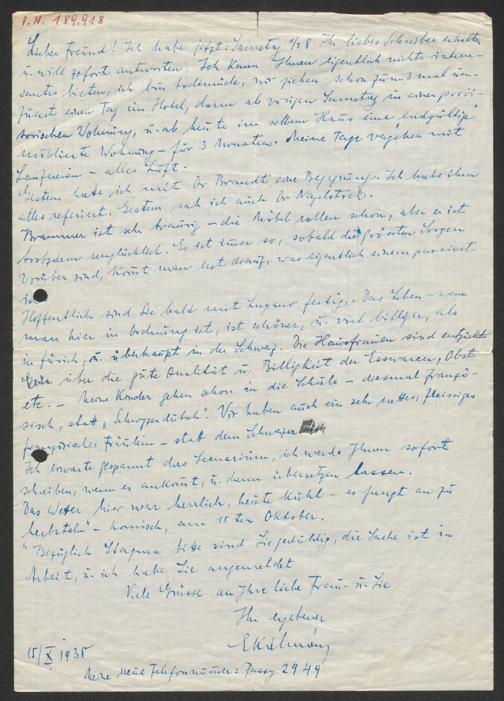 I.N. 189.918
Lieber Freund! Ich habe jetzt: Samstag Ihr liebes Schreiben erhalten
u. will sofort antworten. Ich kann Ihnen eigentlich nichts interes-
santes bieten, ich bin todmüde, wir ziehen schon zum 3 mal um.
Zuerst einen Tag im Hotel, dann ab vorigen Samstag in einer provi-
sorischen Wohnung, u. ab heute im selben Haus eine "endgültige"
möblierte Wohnung – für 3 Monaten. Meine Tage vergehen mit
Lauferein – alles Luft.
Gestern hatte ich mit Dr Brandt eine Begegnung. Ich habe ihm
alles referiert. Gestern sah ich auch Dr
Brammer ist sehr traurig – die Möbel rollen schon, aber er ist
trotzdem unglücklich. Es ist immer so, sobald die grössten Sorgen
vorüber sind, kommt man erst drauf, was eigentlich einem passiert
ist.
Hoffentlich sind Sie bald mit Lugano fertig. Das Leben – wenn
man hier in Ordnung ist, ist schöner, u. viel billiger, als
in Zürich, u. überhaupt in der Schweiz. Die Hausfrauen sind entzückt
über die gute Qualität u. Billigkeit der Esswaren, Obst
etc. – Meine Kinder gehen schon in die Schule – diesmal Franzö-
sisch, statt Wir haben auch ein sehr nettes, fleissiges
französisches Fräulein – statt dem Schweizer
Ich erwarte gespannt das Scenarium, ich werde Ihnen sofort
schreiben, wenn es ankommt, u. dann übersetzen lassen.
Das Wetter hier war herrlich, heute kühl – es fängt an zu
"herbsteln" – komisch, am 15ten Oktober.
Bezüglich Stagma bitte sind Sie geduldig, die Sache ist in
Arbeit, u. ich habe Sie angemeldet
Viele Grüsse an Ihre liebe Frau u. Sie
Ihr ergebener
EKálmán
15/X 1938
Meine neue Telefonnummer: Passy 2949